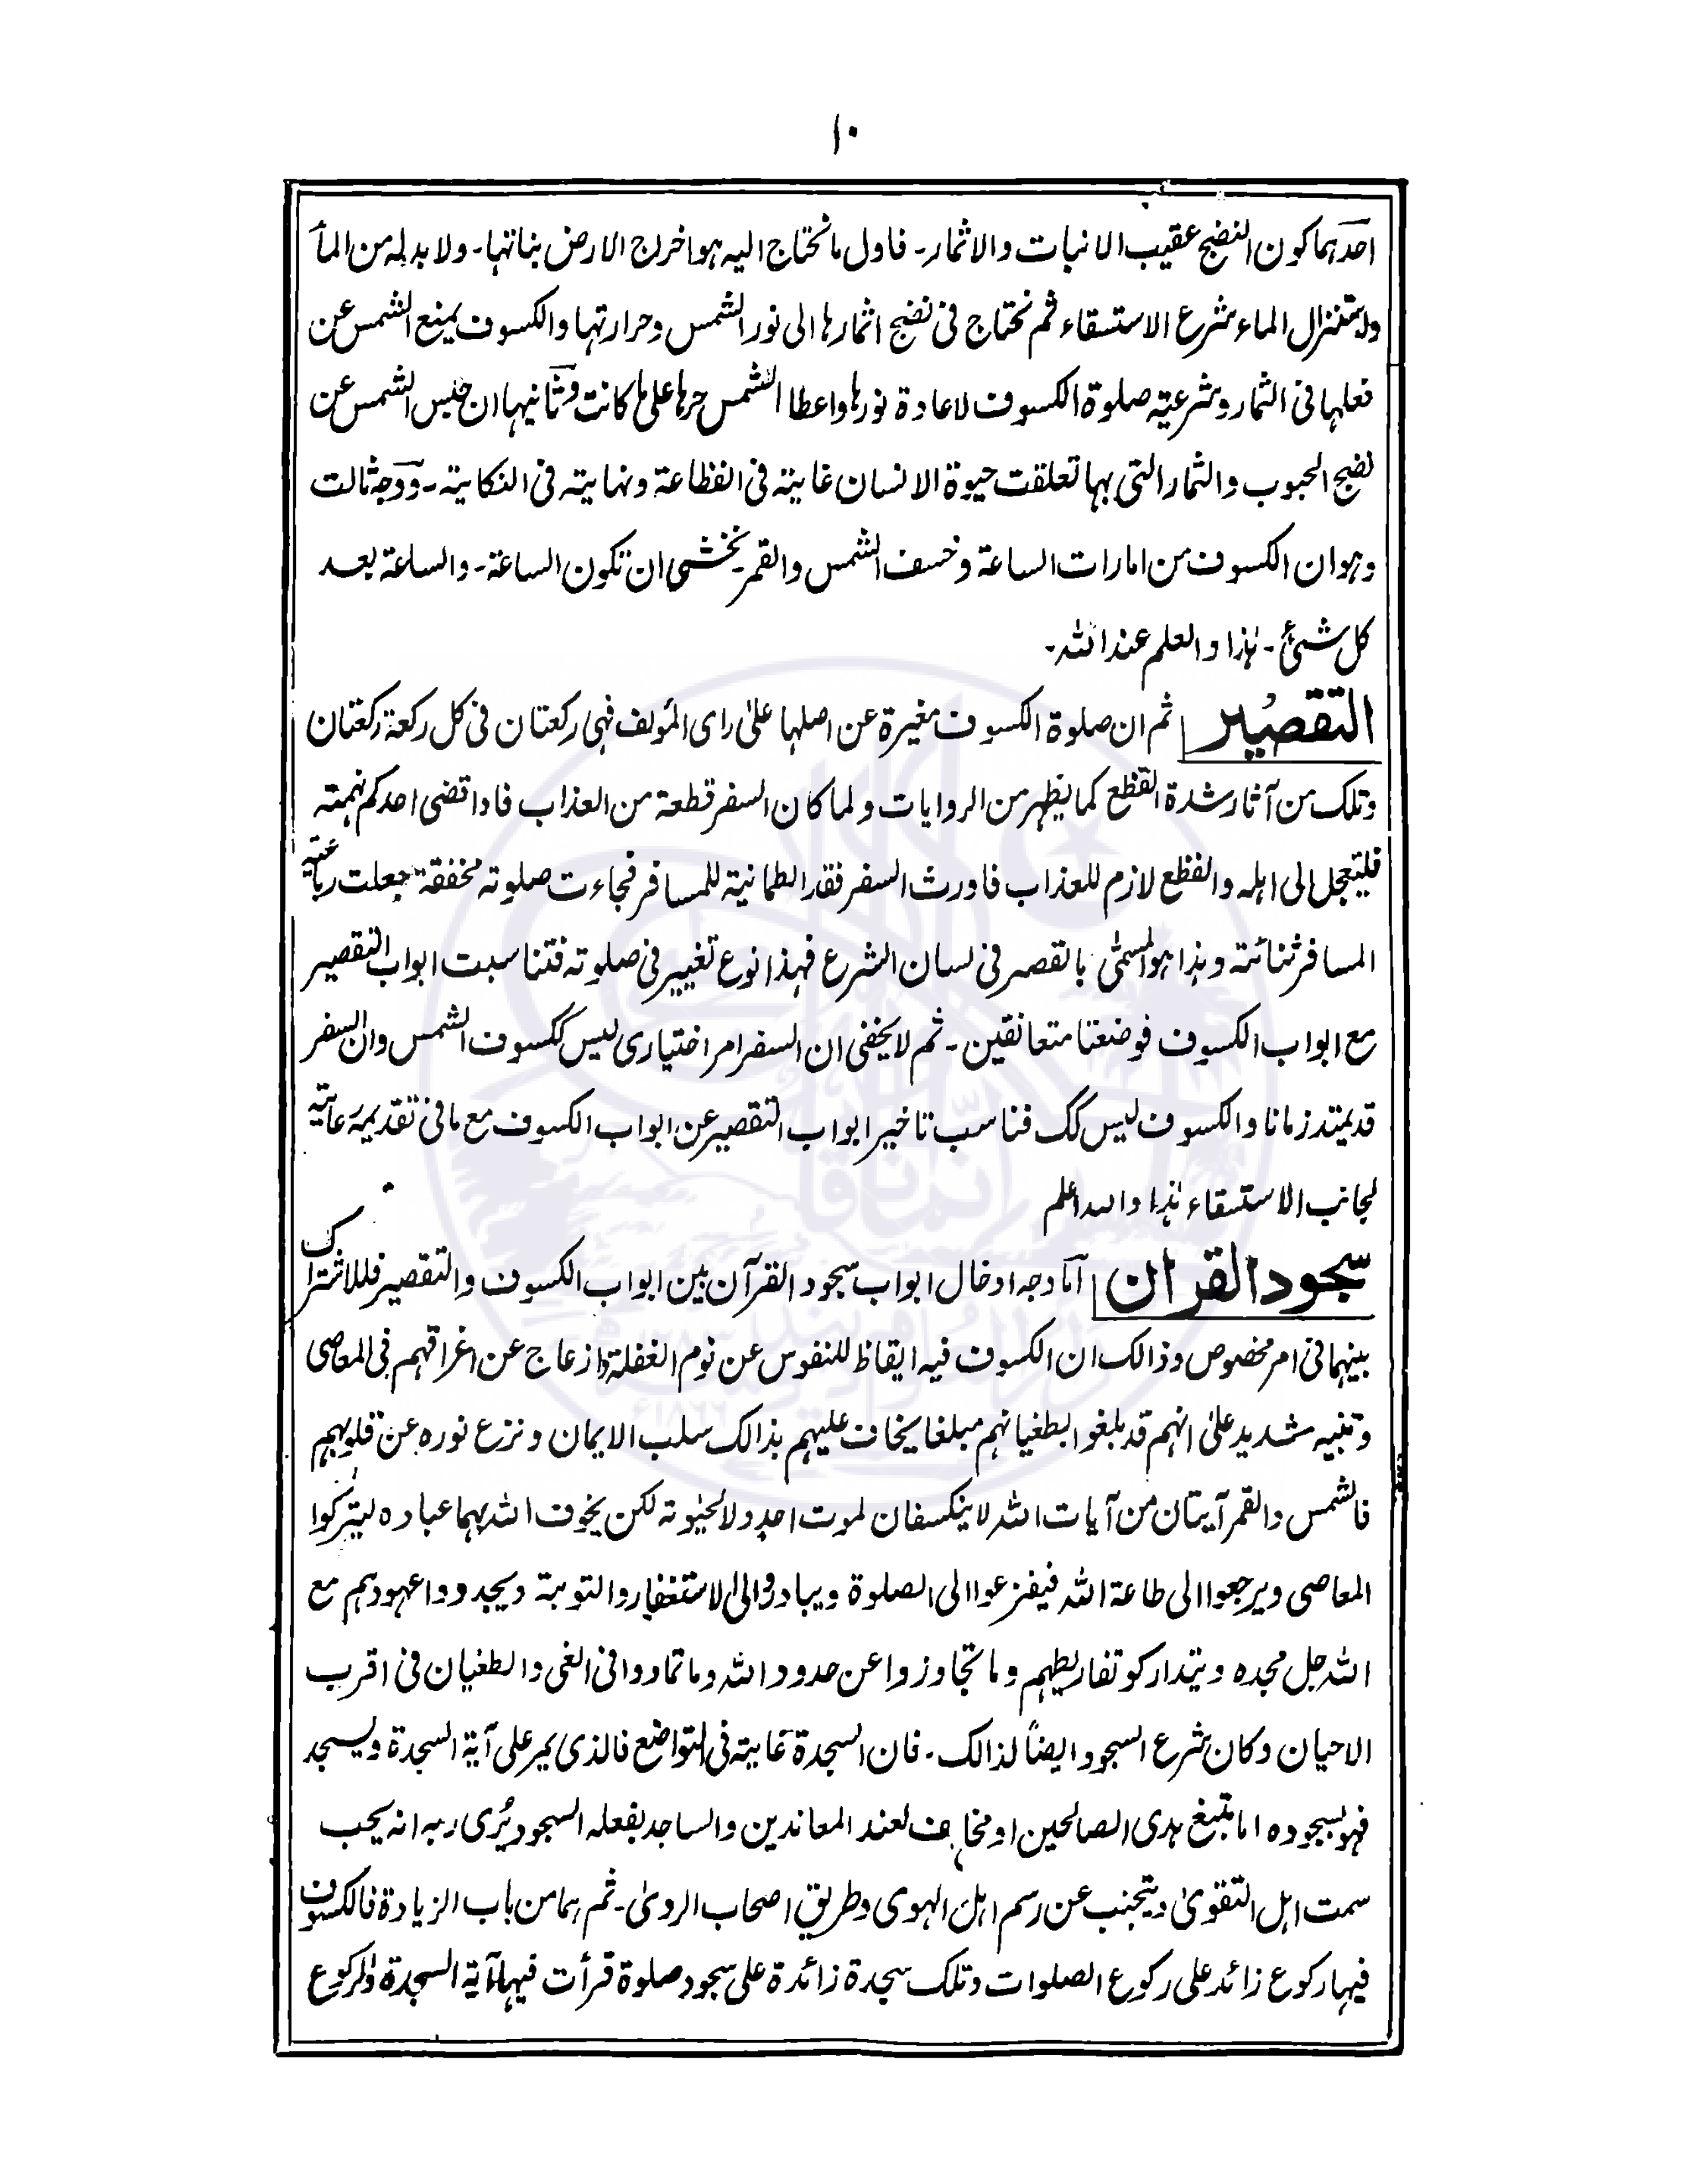 ١٠
احدہما كون النضج عقيب الانبات والاثمار۔ فاول ما نحتاج اليہ ہو اخراج الارض بناتہا۔ ولا بد لہ من المأ
ولاستنزال الماء شرع الاستسقاء ثم نحتاج فى نضج اثمارہا الى نور الشمس وحرارتہا والكسوف يمنع الشمس عن
فعلہا فى الثمار وشرعيتہ صلوة الكسوف لاعادة نورہا واعطا الشمس حرہا على ما كانت وثانيہا ان حبس الشمس عن
نضج الحبوب والثمار التى بہا تعلقت حيوة الانسان غايتہ فى الفظاعة ونہايتہ فى النكايتہ۔ ووجہ ثالث
وہو ان الكسوف من امارات الساعة وخسف الشمس والقمر يخشى ان تكون الساعة۔ والساعة بعد
كل شئ۔ ہذا والعلم عند اللہ۔
التقصير ثم ان صلوة الكسوف مغيرة عن اصلہا علىٰ راى المؤلف فہى ركعتان فى كل ركعة ركعتان
وتلك من آثار شدة الفظع كما يظہر من الروايات ولما كان السفر قطعة من العذاب فاذا قضى احدكم نہمتہ
فليتعجل الى اہلہ والفظع لازم للعذاب فاورث السفر فقد الطمانية للمسافر فجاءت صلوتہ مخففة جعلت رباعية
المسافر ثنائتہ وہذا ہو المسمىٰ بالقصر فى لسان الشرع فہذا نوع تغيير فى صلوتہ فتناسبت ابواب التقصير
مع ابواب الكسوف فوضعتا متعانقين۔ ثم لا يخفى ان السفر امر اختيارى ليس ككسوف الشمس وان السفر
قد يمتد زمانا والكسوف ليس كك فناسب تاخير ابواب التقصير عن ابواب الكسوف مع ما فى تقديمہ رعايتہ
لجانب الاستسقاء ہذا واللہ اعلم
سجود القرآن اما وجہ ادخال ابواب سجود القرآن بين ابواب الكسوف والتقصير فللاشتراك
بينہما فى امر مخصوص وذالك ان الكسوف فيہ ايقاظ للنفوس عن نوم الغفلة وازعاج عن اغراقہم فى المعاصى
وتنبيہ شديد علىٰ انہم قد بلغوا بطغيانہم مبلغا يخاف عليہم بذالك سلب الايمان ونزع نورہ عن قلوبہم
فالشمس والقمر آيتان من آيات اللہ لا ينكسفان لموت احد ولا لحيٰوتہ لكن يخوف اللہ بہما عبادہ ليتركوا
المعاصى ويرجعوا الى طاعة اللہ فيفزعوا الى الصلوة ويبادروا الى الاستغفار والتوبتہ ويجددوا عہودہم مع
اللہ جل مجدہ ويتداركو تفاريطہم وما تجاوزوا عن حدود اللہ وما تمادوا فى الغى والطغيان فى اقرب
الاحيان وكان شرع السجود ايضاً لذالك۔ فان السجدة غايتہ فى التواضع فالذى يمر على آية السجدة ويسجد
فہو بسجودہ اما متبع ہدى الصالحين او مخالف لعند المعاندين والساجد بفعلہ السجود يُرى ربہ انہ يحب
سمت اہل التقوىٰ ويتجنب عن رسم اہل الہوى وطريق اصحاب الردىٰ۔ ثم ہما من باب الزيادة فالكسوف
فيہا ركوع زائد على ركوع الصلوات وتلك سجدة زائدة على سجود صلوة قرأت فيہا آية السجدة والركوع